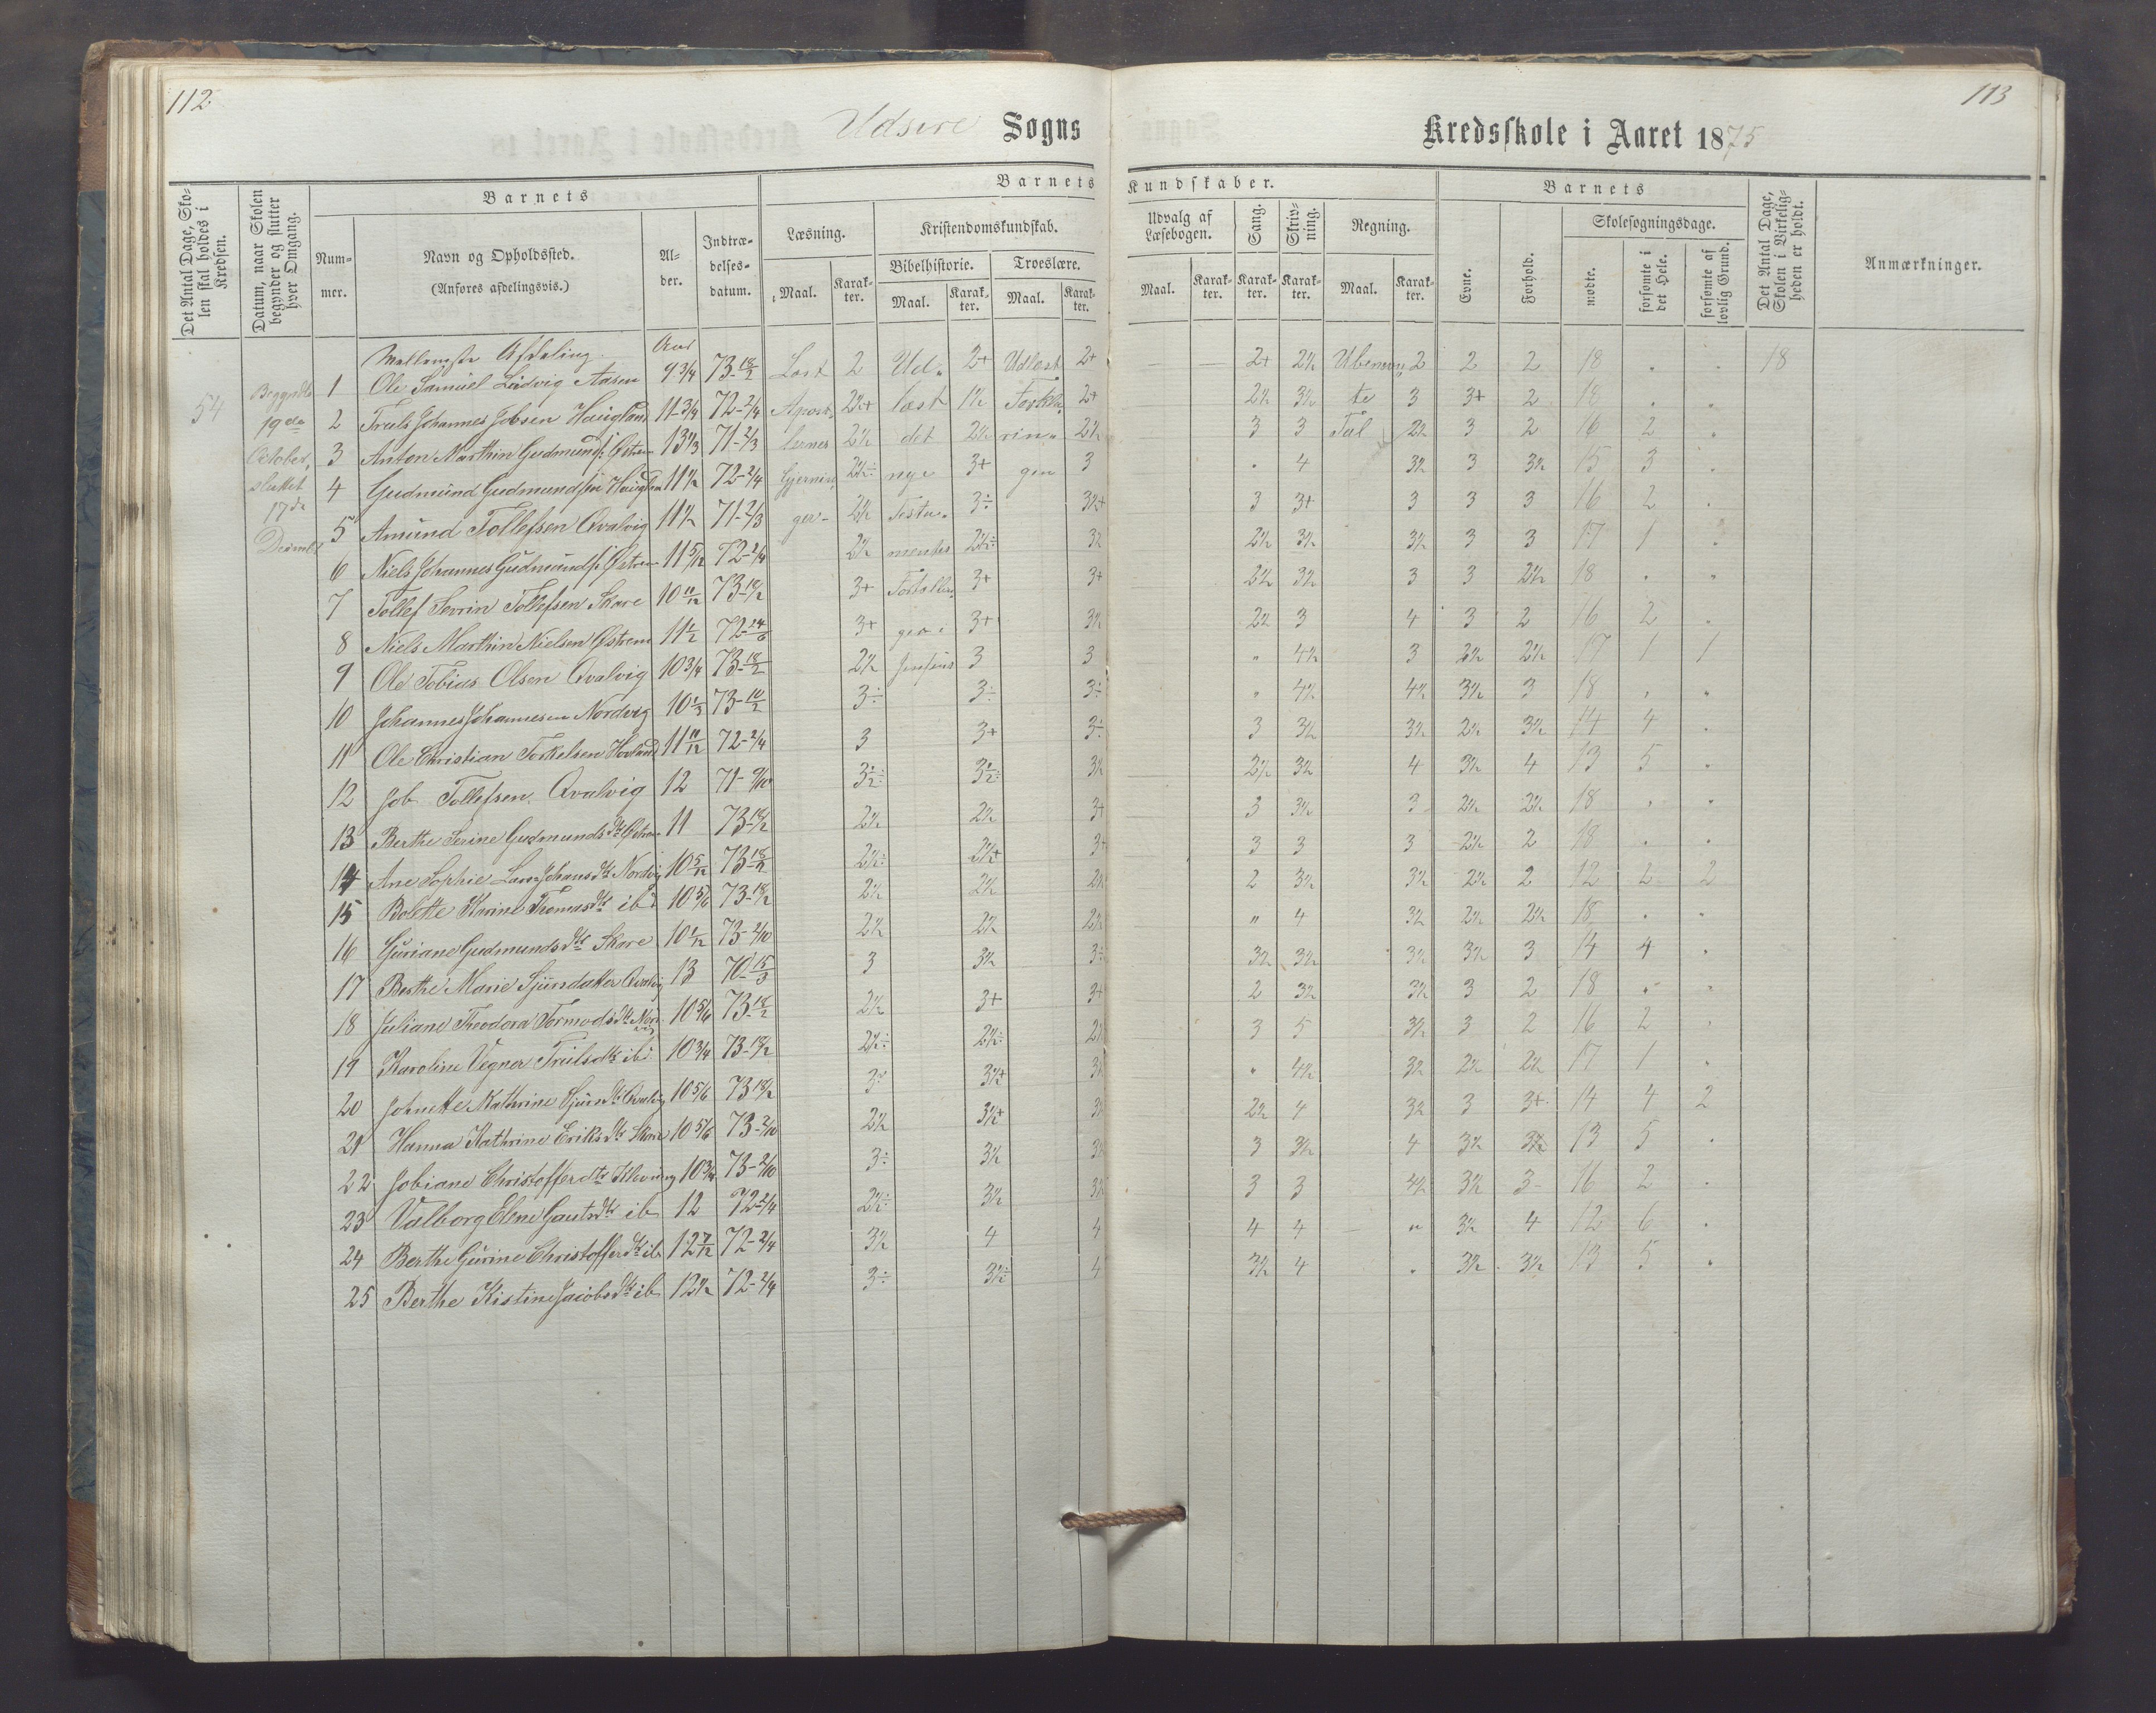 112.
113
Udsire Sogns
Kredsskole i Aaret 1875
Det Antal Dage, Skolen skal holdes i Kredsen.
Datum, naar Skolen begynder og slutter hver Omgang.
Barnets
Barnets Kundskaber.
Barnets
Nummer.
Navn og Opholdssted.
(Anføres afdelingsvis.)
Alder.
Indtrædelsesdatum.
Læsning.
Kristendomskundskab.
Bibelhistorie.
Troeslære.
Udvalg af Læsebogen.
Sang.
Skrivning.
Regning.
Evne.
Forhold.
Skolesøgningsdage.
mødte.
forsømte i det Hele.
forsømte af lovlig Grund.
Det Antal Dage, Skolen i Virkeligheden er holdt.
Anmærkninger.
Maal. Karakter. Maal. Karakter. Maal. Karakter. Maal. Karakter. Karakter. Karakter. Maal. Karakter.
Mellemste Afdeling. Aar
54
Begyndte 19de October, sluttet 17de
1 Ole Samuel Ludvig Aasen 9 3/4 73-18/2 Læst 2 Ud- 2+ Udlæst 2+ — — 2+ 2½ Ubenævn 2 2 2 18 . . 18
2 Truls Johannes Jobsen Haugland 11 3/4 72-2/4 Apost- 2½+ læst 1½ Forkla 2+ 2½ 3½ te 3 3+ 2 18 . .
3 Anton Marthin Gudmunds. Østrem 13 1/3 71-2/3 lernes 2½ det 2½ rin- 2½ 3 3 Tal 2½ 3 2 16 2 .
4 Gudmund Gudmundsen Haugland 11½ 72-2/4 Gjernin 2½÷ nye 3+ gen 3 . 4 3½ 3 3½ 15 3 .
5 Amund Tollefsen Qvalvig 11½ 71-2/3 ger- 2½ Testa- 3÷ 3½+ 3 3+ 3 3 3 16 2 .
6 Niels Johannes Gudmunds. Østrem 11 5/12 72-2/4 2½ mentes 2½÷ 3½ 2½ 3½ 3½ 3 3 17 1 .
7 Tollef Sevrin Tollefsen Skare 10 11/12 73-18/2 3+ Fortællin 3+ 3+ 2½ 3½ 3 3 2½ 18 . .
8 Niels Marthin Nielsen Østrem 11 1/2 72-14/6 3+ ger 3+ 3½ 2½ 3 4 3 2 16 2 .
9 Ole Tobias Olsen Qvalvig 10 3/4 73-18/2 2½ 3 3 " 4½ 3 2½ 2½ 17 1 1
10 Johannes Johannesen Nordvig 10 1/3 73-10/2 3÷ 3÷ 3÷ " 4½ 4½ 3½ 3 18 . .
11 Ole Christian Torkelsen Hovland 11 11/12 72-2/4 3 3+ 3÷ 3 3½ 3½ 2½ 3½ 14 4 .
12 Job Tollefsen Qvalvig 12 71-9/10 3½÷ 3½÷ 3½ 2½ 3½ 4 3½ 4 13 5 .
13 Berthe Serine Gudmundsdtr Østrem 11 73-18/2 2½ 2½ 3+ 3 3½ 3 2½ 2½ 18 . .
14 Ane Sophie Johansdtr Nordvig 10 5/12 73-18/2 2½÷ 2½+ 3+ 3 3 3 2½ 2 18 . .
15 Bolette Karine Thomasdtr ib 10 5/6 73-18/2 2½ 2½ 2½ 2 3½ 3½ 2½ 2 12 2 2
16 Guriane Gudmundsdtr Skare 10 1/12 73-2/10 2½ 2½ 2½ " 4 3½ 2½ 2½ 18 . .
17 Berthe Marie Sjurdatter Qvalvig 13 70-15/3 3 3½ 3÷ 3½ 3½ 3½ 3½ 3 14 4 .
18 Juliane Theodora Tormodsdtr Nordv 10 5/6 73-18/2 2½ 3+ 3+ 2 3½ 3½ 3 2 18 . .
19 Karoline Vegner Trulsdtr ib 10 3/4 73-18/2 2½÷ 2½÷ 2½ 3 5 3½ 3 2 16 2 .
20 Johnette Kathrine Sjursdtr Qvalvig 10 5/6 73 18/2 3÷ 3½+ 3½ . 4½ 3½ 2½ 2½ 17 1 .
21 Hanna Kathrine Eriksdtr Skare 10 5/6 73-2/10 2½ 3½+ 3½ 2½ 4 3½ 3 3+ 14 4 2
22 Jobiane Christofferdtr Klovning 10 3/4 73-2/10 3÷ 3½ 3½ 3 3½ 4 3½ 3½ 13 5 .
23 Valborg Elene Gautsdtr ib 12 72-2/4 2½÷ 3½ 3½ 3 3 4½ 3½ 3 16 2 .
24 Berthe Gurine Christofferdtr ib 12 7/12 72-2/4 3½ 4 4 4 4 " 3½ 4 12 6 .
25 Berthe Kistine Jacobsdtr ib 12½ 72-2/4 3÷ 3½÷ 4 3½ 4 . 3½ 3½ 13 5 .